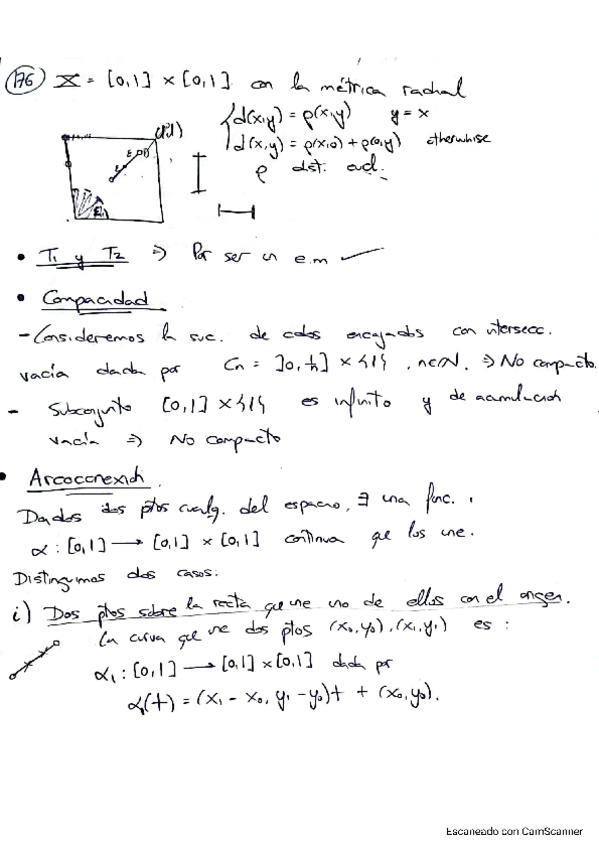 176 X = [0,1] × [0,1] con la métrica radial
d(x,y) = ρ(x,y) y = x
d(x,y) = ρ(x,0) + ρ(0,y) otherwhise
ρ dist. eucl.
(1,1)
• T1 y T2 ⇒ Por ser un e.m ✓
• Compacidad
- Consideremos la suc. de cdos encajados con intersecc.
vacía dada por Cn = ]0, 1/n] × {1}, n∈N. ⇒ No compacto.
- Subconjunto [0,1] × {1} es infinito y de acumulación
vacía ⇒ No compacto
• Arcoconexión.
Dados dos ptos cualq. del espacio, ∃ una func.
α : [0,1] → [0,1] × [0,1] continua que los une.
Distinguimos dos casos:
i) Dos ptos sobre la recta que une uno de ellos con el origen.
La curva que une dos ptos (x0,y0), (x1,y1) es :
α1 : [0,1] → [0,1] × [0,1] dada por
α1(t) = (x1 - x0, y1 - y0)t + (x0,y0).
Escaneado con CamScanner